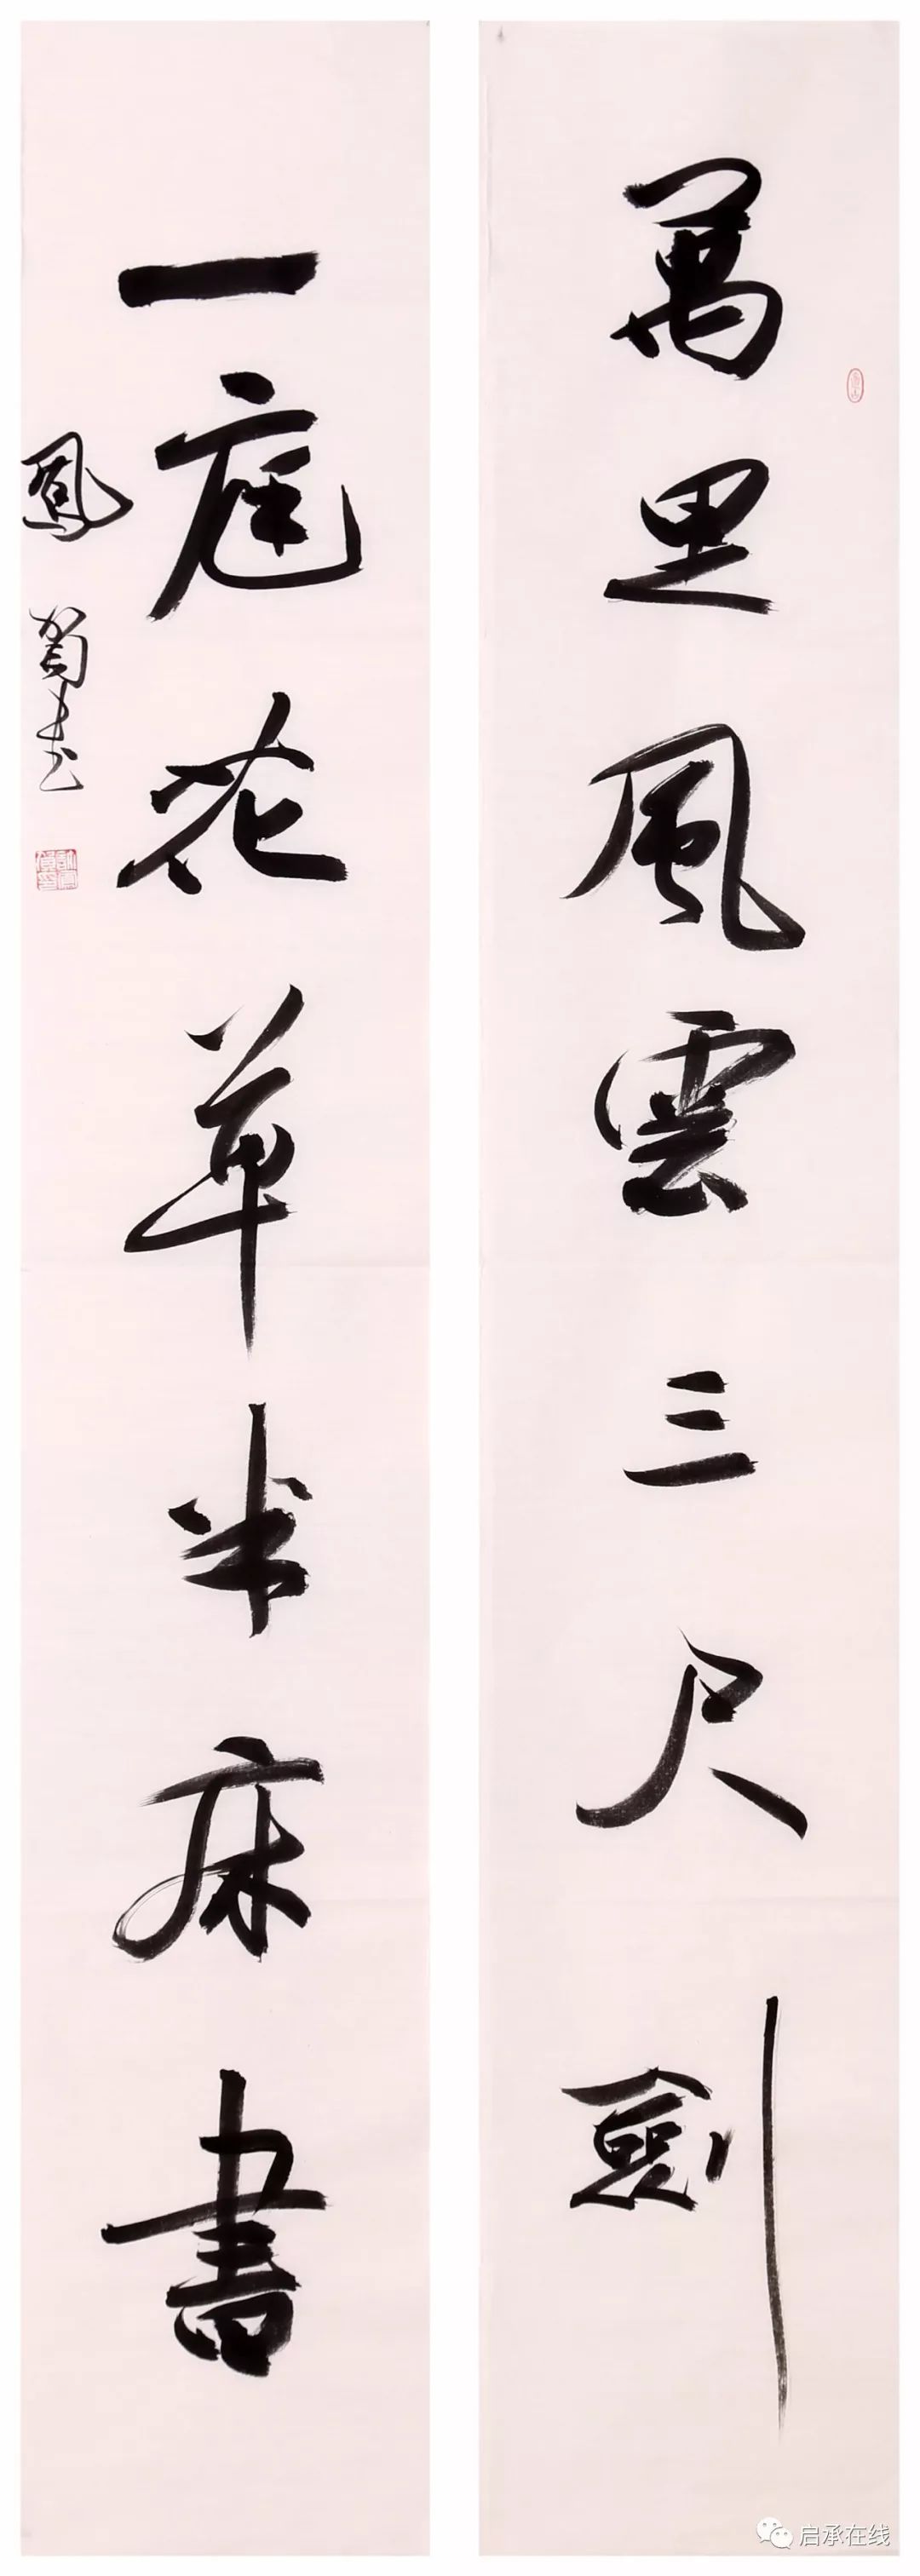 萬里風雲三尺劍
一庭花草半床書
鳳
書
启承在线